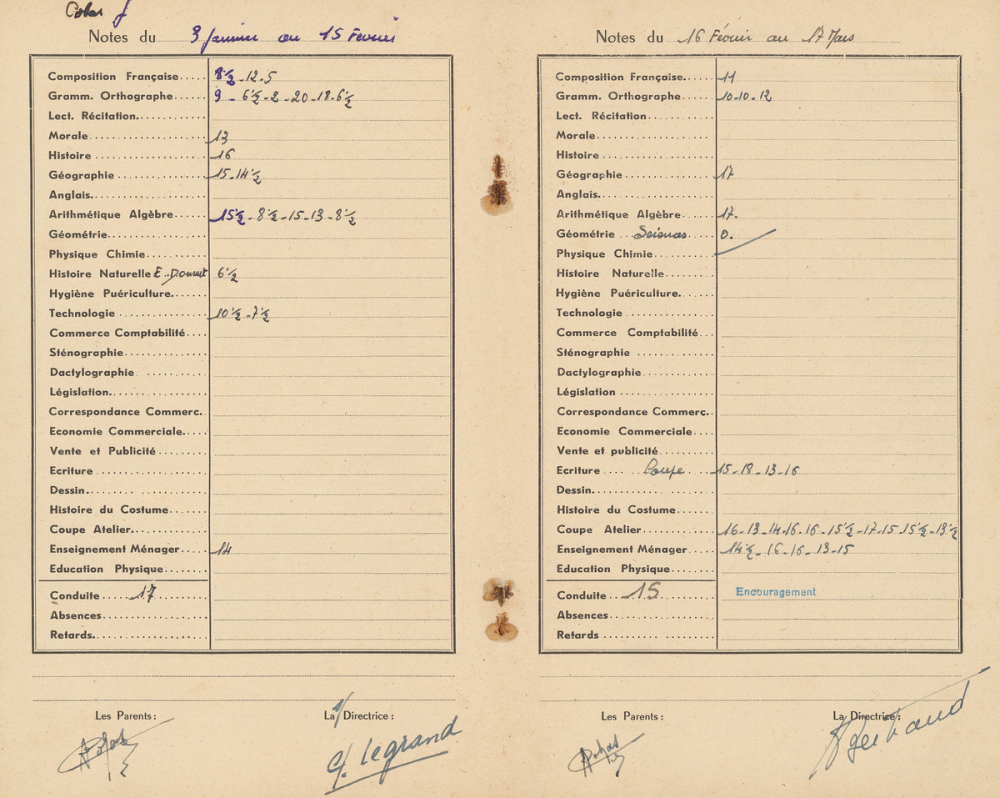 Notes du 3 Janvier au 15 Février
Composition Française..... 8½-12-5
Gramm. Orthographe...... 9-6½-2-20-18-6½
Lect. Récitation..............
Morale...................... 13
Histoire..................... 16
Géographie................. 15-14½
Anglais......................
Arithmétique Algèbre...... 15½-8½-15-13-8½
Géométrie..................
Physique Chimie............
Histoire Naturelle 6½
Hygiène Puériculture.......
Technologie................ 10½-7½
Commerce Comptabilité....
Sténographie...............
Dactylographie ............
Législation..................
Correspondance Commerc.
Economie Commerciale.....
Vente et Publicité .........
Ecriture ....................
Dessin.... .............
Histoire du Costume.......
Coupe Atelier..............
Enseignement Ménager..... 14
Education Physique........
Conduite ....17........
Absences...................
Retards.....................
Les Parents :
La Directrice :
G. Legrand
Notes du 16 Février au 17 Mars
Composition Française..... 11
Gramm. Orthographe ..... 10-10-12
Lect. Récitation ............
Morale......................
Histoire.....................
Géographie................. 17
Anglais......................
Arithmétique Algèbre...... 17.
Géométrie 0.
Physique Chimie............
Histoire Naturelle..........
Hygiène Puériculture.......
Technologie................
Commerce Comptabilité....
Sténographie ..............
Dactylographie.............
Législation .................
Correspondance Commerç.
Economie Commerciale.....
Vente et publicité..........
Ecriture .... Coupe 15-18-13-16
Dessin......................
Histoire du Costume.......
Coupe Atelier.............. 16-13-14-16-16-15½-17-15-15½-13½
Enseignement Ménager..... 14½-16-16-13-15
Education Physique........
Conduite ....15........ Encouragement
Absences...................
Retards ....................
Les Parents :
La Directrice :